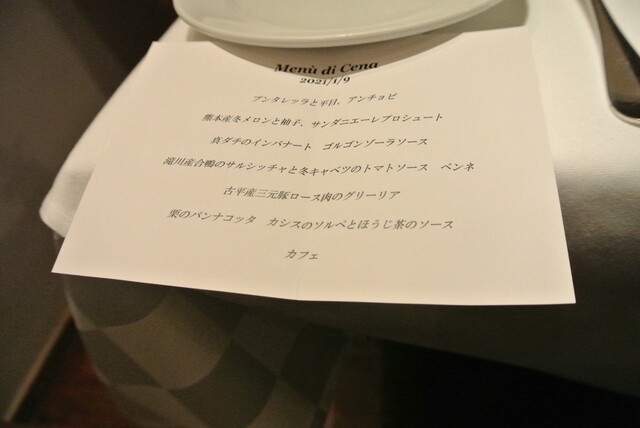 Menù di Cena
2021/1/9
プンタレッラと平目、アンチョビ
熊本産冬メロンと柚子、サンダニエーレプロシュート
真ダチのインパナート　ゴルゴンゾーラソース
滝川産合鴨のサルシッチャと冬キャベツのトマトソース　ペンネ
古平産三元豚ロース肉のグリーリア
栗のパンナコッタ　カシスのソルベとほうじ茶のソース
カフェ